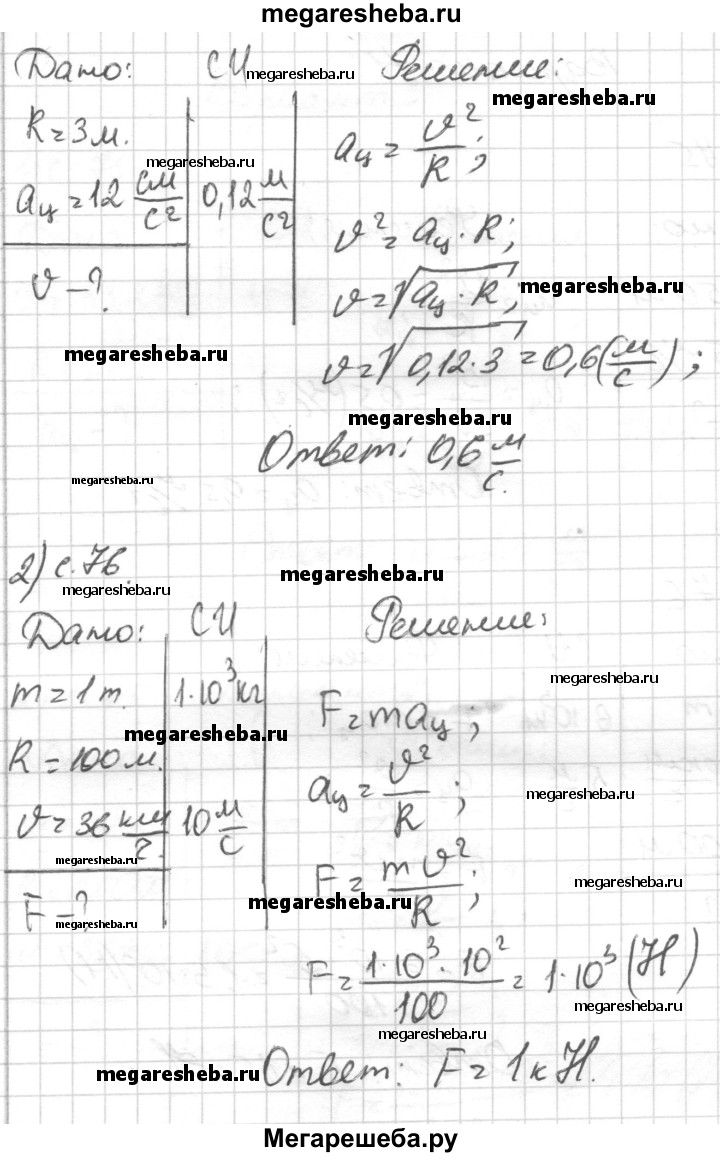 megaresheba.ru
Дано: СИ megaresheba.ru Решение:
megaresheba.ru
R = 3 м.
megaresheba.ru
aц = v²/R;
aц = 12 см/с² 0,12 м/с²
v² = aц · R;
v – ?
v = √(aц · R); megaresheba.ru
megaresheba.ru
v = √(0,12 · 3) = 0,6 (м/с);
megaresheba.ru
Ответ: 0,6 м/с.
megaresheba.ru
2) с. 76.
megaresheba.ru megaresheba.ru
Дано: СИ Решение:
megaresheba.ru
m = 1 т. 1·10³ кг
F = maц;
megaresheba.ru
R = 100 м.
aц = v²/R;
megaresheba.ru
v = 36 км/ч. 10 м/с
megaresheba.ru
F = mv²/R;
megaresheba.ru
F – ?
megaresheba.ru
megaresheba.ru
F = 1·10³ · 10²/100 = 1·10³ (Н)
megaresheba.ru
megaresheba.ru
megaresheba.ru Ответ: F = 1 кН.
Мегарешеба.ру